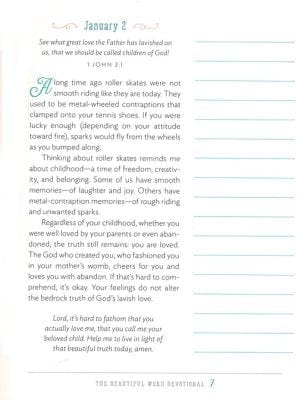 January 2
See what great love the Father has lavished on
us, that we should be called children of God!
1 JOHN 3:1
A long time ago roller skates were not
smooth riding like they are today. They
used to be metal-wheeled contraptions that
clamped onto your tennis shoes. If you were
lucky enough (depending on your attitude
toward fire), sparks would fly from the wheels
as you bumped along.
Thinking about roller skates reminds me
about childhood—a time of freedom, creativ-
ity, and belonging. Some of us have smooth
memories—of laughter and joy. Others have
metal-contraption memories—of rough riding
and unwanted sparks.
Regardless of your childhood, whether you
were well loved by your parents or even aban-
doned, the truth still remains: you are loved.
The God who created you, who fashioned you
in your mother's womb, cheers for you and
loves you with abandon. If that's hard to com-
prehend, it's okay. Your feelings do not alter
the bedrock truth of God's lavish love.
Lord, it's hard to fathom that you
actually love me, that you call me your
beloved child. Help me to live in light of
that beautiful truth today, amen.
THE BEAUTIFUL WORD DEVOTIONAL 7